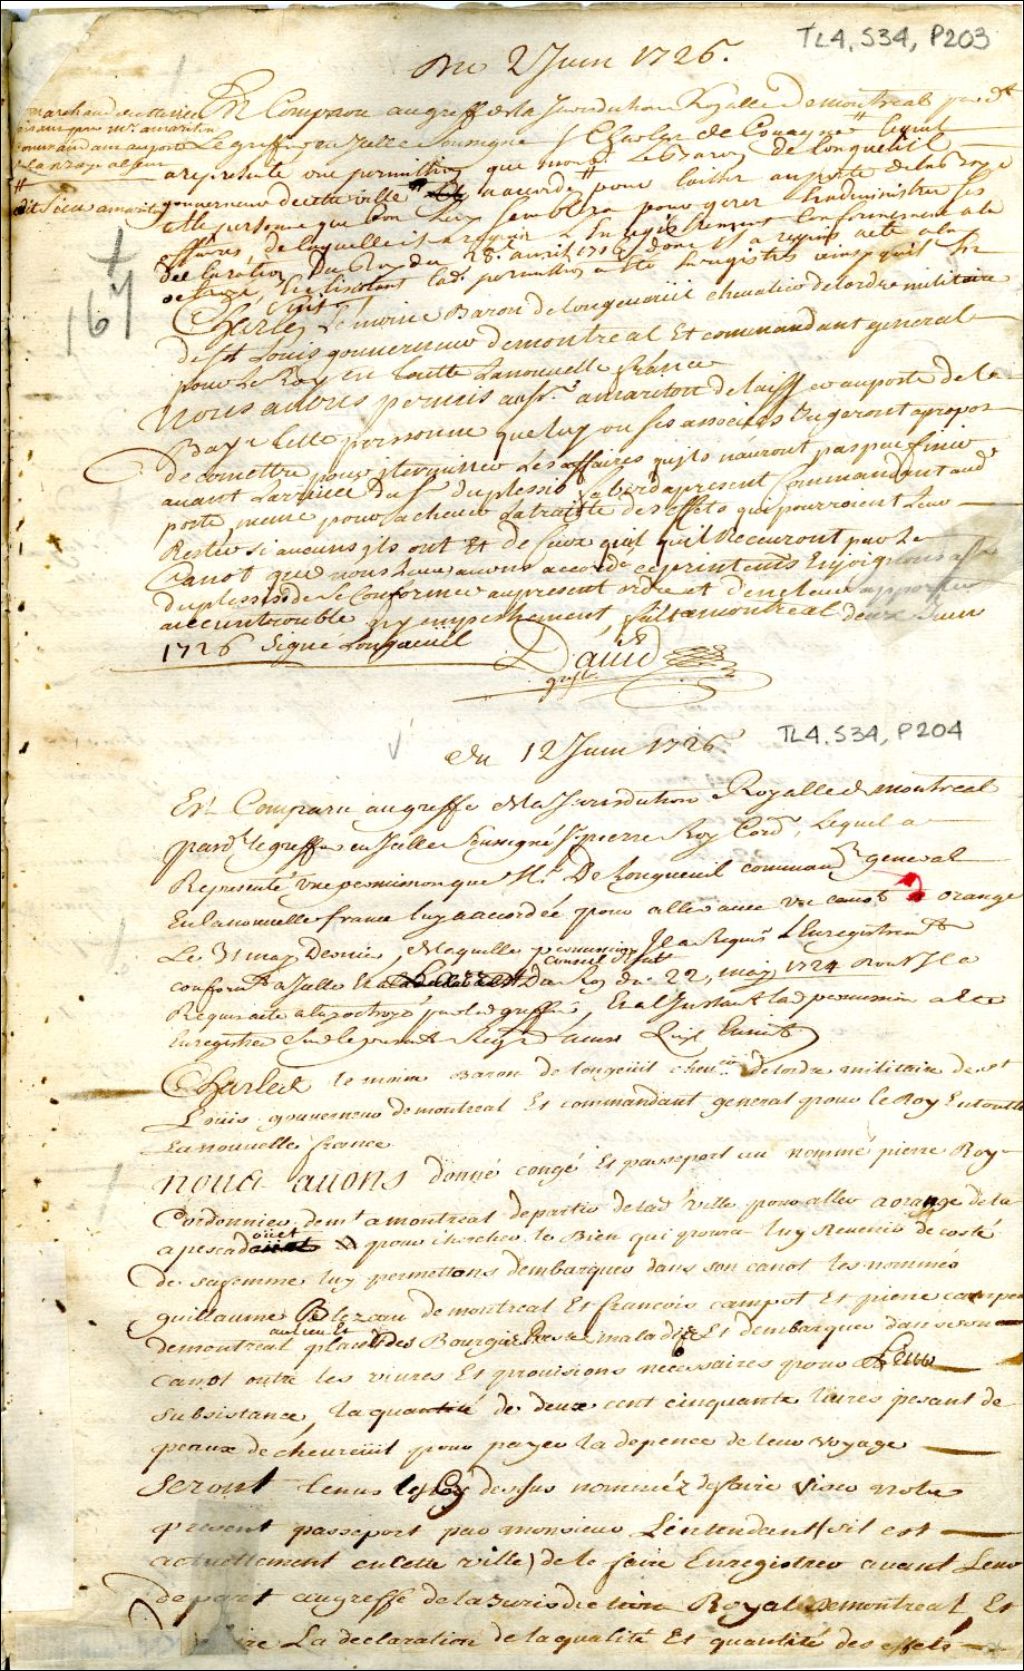 TL4, S34, P203
Du 2 Juin 1726.
marchand
Est Comparu au greffe de la Jurisdiction Royalle de montreal par dt
Le greffier en Icelle Soussigné Sr Charles de Couagne lequel
a represente une permission que monsr Le Baron de Longueuil
dit Sieur amariton
gouverneur de cette ville a accordé pour laisser au poste de la Baye
telle personne que bon leur semblera pour gerer & administrer ses
affaires de laquelle il a requis L'Enregistrement Conformement a la
declaration Du Roy du 28. avril 1726 dont Il a requis acte
167
Charles Lemoine Baron de longueuil chevalier de lordre militaire
de St Louis gouverneur de montreal Et commandant general
pour Le Roy en toutte La nouvelle france
Nous avons permis au Sr amariton de laisser au poste de la
Baye telle personne que luy ou ses associes Jugeront apropos
de comettre pour y terminer Les affaires qu'ils n'auront pas pu finir
avant L'arrivée du Sr duplessis fabert a present Commandant aud
poste, meme pour achever la traitte des effets qui pourroient Leur
Rester si aucuns ils ont Et de Ceux quil Recevront par Le
Canot que nous Leur avons accordé ces printemts Enjoignons au Sr
duplessis de se Conformer au present ordre et d'en leur apporter
aucun trouble ny empeschement, fait a montreal deux Juin
1726 Signé Longueuil
David
greff
TL4, S34, P204
Du 12 Juin 1726.
Est Comparu au greffe de la Jurisdiction Royalle de montreal
pard. le greffier en Icelle Soussigné Sr. pierre Roy Cord. Lequel a
Representé une permission que Mr. De Longueuil command. general
En la nouvelle france luy a accordée pour aller avec un canot a orange
Le 31 may Dernier, de laquelle permission Il a Requis L'Enregistrement
conseil d'Estat
conform. a Icelle Et a Du Roy du 22, may 1724 dont Il a
Requis acte a luy octroyé par led. greffier, Et a l'Instant lad. permission a Ete
Enregistrée Sur le present Registre Ainsi Quil Ensuit
Charles le moine Baron de longeüil chevr. de lordre militaire de st
Louis gouverneur de montreal Et commandant general pour le Roy En toutte
La nouvelle france
nous avons donné congé Et passeport au nommé pierre Roy
Cordonnier demt a montreal de partir de lad. ville pour aller a orange de la
a pescadoüet pour chercher le Bien qui pourra luy Revenir de costé
de sa femme luy permettons d'embarquer dans son canot les nommés
guillaume Blezau de montreal Et francois campot Et pierre campeau
au lieu Et
de montreal place des Bourguis Reste malade Et d'embarquer dans son
canot outre les vivres Et provisions necessaires pour Leur
subsistance, la quantité de deux cent cinquante livres pesant de
peaux de chevreüil pour payer la depence de leur voyage
Seront tenus les sy dessus nommez de faire viser notre
present passeport par monsieur L'intendant (s'il est
actuellement en Cette ville) de le faire Enregistrer avant Leur
depart au greffe de la Jurisdiction Royal de montreal Et
faire La declaration de la qualité Et quantité des effets